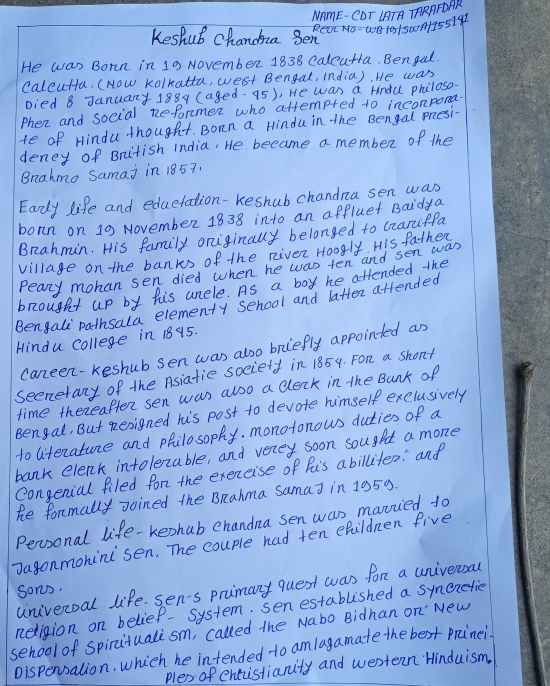 NAME-CDT LATA TARAFDAR
REGL NO-WB19/SWA/155141
Keshub Chandra Sen
He was Born in 19 November 1838 Calcutta. Bengal.
Calcutta. (Now Kolkatta, West Bengal, India). He was
Died 8 January 1884 (aged-45), He was a Hndu Philoso-
Pher and Social Reformer who attempted to incorpora-
te of Hindu thought. Born a Hindu in the Bengal Presi-
dency of British India, He became a member of the
Brahmo Samaj in 1857.
Early life and eductation- Keshub chandra sen was
born on 19 November 1838 into an affluet Baidya
Brahmin. His family originally belonged to Grariffa
village on the banks of the River Hoogly. His father
Peary mohan Sen died when he was ten and sen was
brought up by his uncle. As a boy he attended the
Bengali Pathsala elementy School and latter attended
Hindu College in 1845.
Career- Keshub Sen was also briefly appointed as
Secretary of the Asiatic Society in 1854. For a short
time thereafter sen was also a Clerk in the Bank of
Bengal. But resigned his post to devote himself exclusively
to literature and philosophy. monotonous duties of a
bank clerk intolerable, and verey soon sought a more
Congenial filed for the exercise of his abillites: and
he formally Joined the Brahma Samaj in 1959.
Personal life- Keshub Chandra Sen was married to
Jagonmohini Sen. The couple had ten children five
Sons.
Universal life. Sen-s primary quest was for a universal
religion or belief- System. Sen established a Syncretic
School of Spirituali sm, Called the Nabo Bidhan or New
Dispensalion. which he intended to amlagamate the best princi-
Ples of Christianity and western Hinduism.